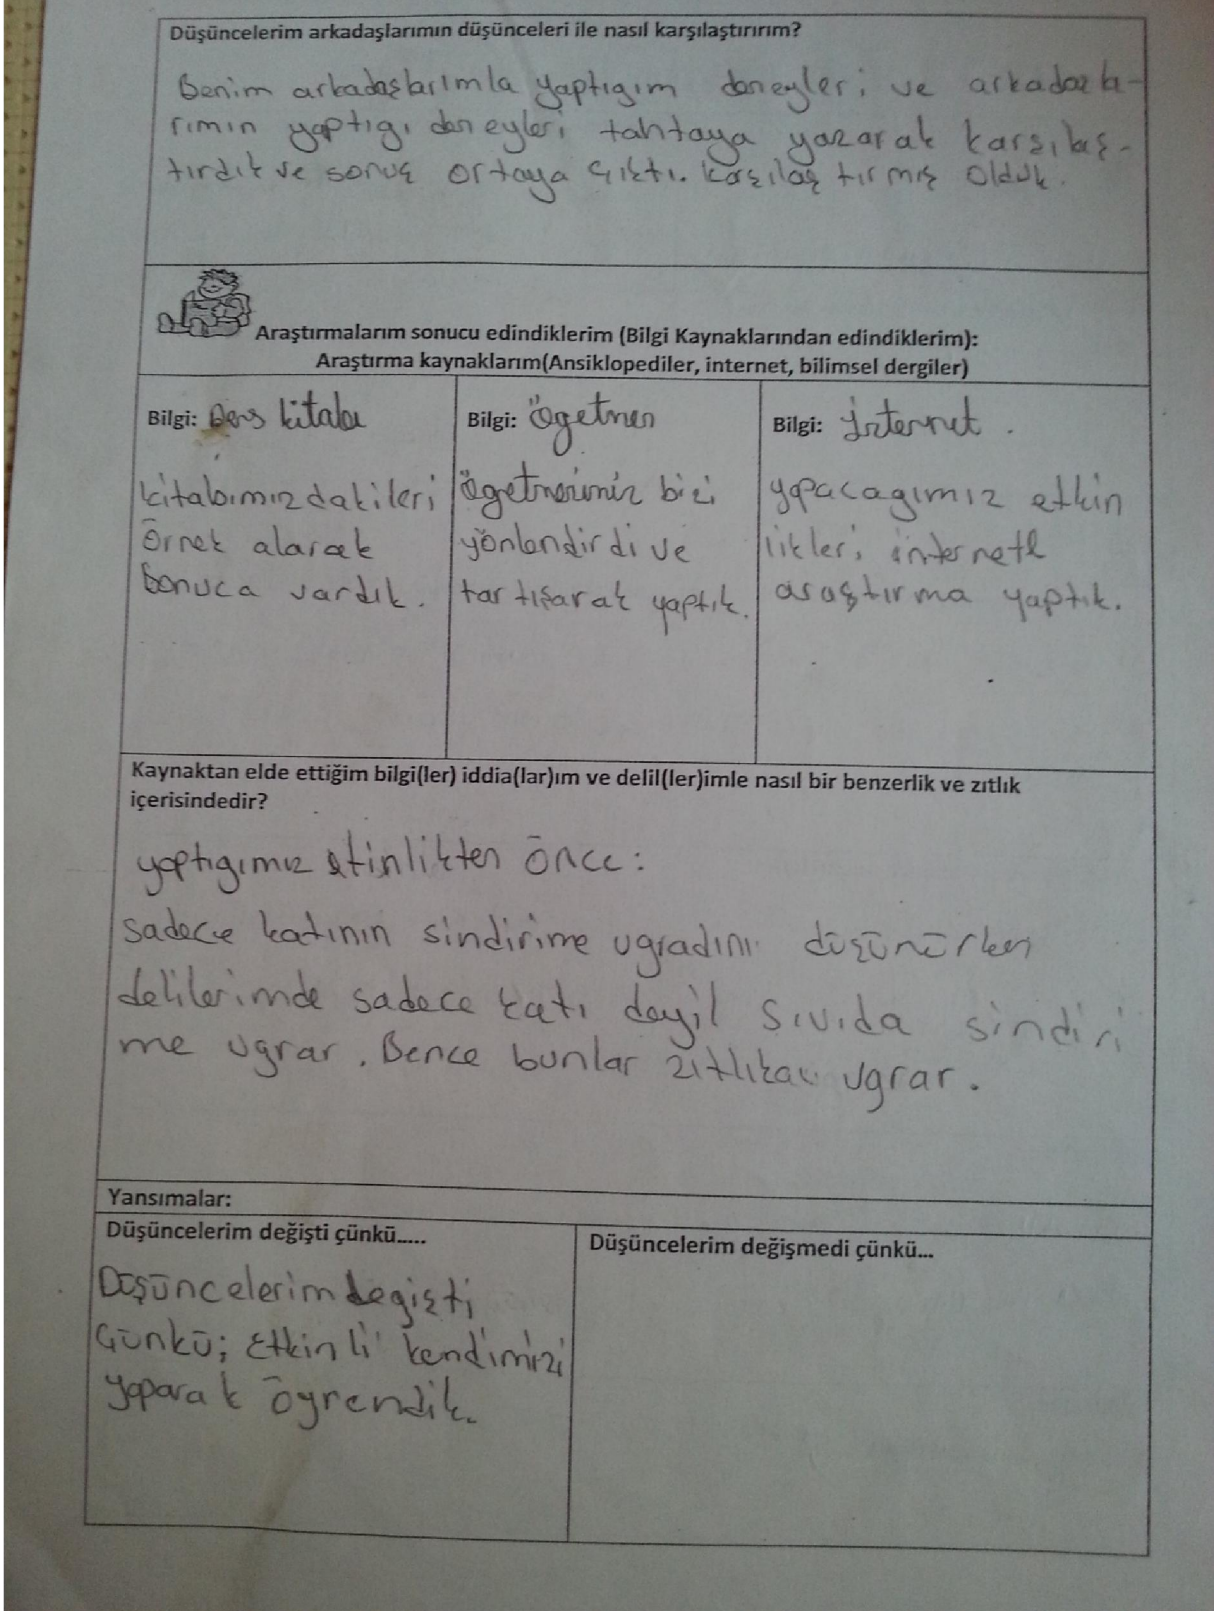 Düşüncelerim arkadaşlarımın düşünceleri ile nasıl karşılaştırırım?
Benim arkadaşlarımla yaptıgım deneyleri ve arkadaşla-
rımın yaptıgı deneyleri tahtaya yazarak karşılaş-
tırdık ve sonuç ortaya çıktı. karşılaştırmış olduk.
Araştırmalarım sonucu edindiklerim (Bilgi Kaynaklarından edindiklerim):
Araştırma kaynaklarım(Ansiklopediler, internet, bilimsel dergiler)
Bilgi: Ders kitabı
kitabımızdakileri
örnek alarak
sonuca vardık.
Bilgi: Ögetmen
ögetmenimiz bizi
yönlendirdi ve
tartışarak yaptık.
Bilgi: İnternet.
yapacagımız etkin
likleri internette
araştırma yaptık.
Kaynaktan elde ettiğim bilgi(ler) iddia(lar)ım ve delil(ler)imle nasıl bir benzerlik ve zıtlık
içerisindedir?
yaptıgımız etinlikten önce:
sadece katının sindirime ugradını düşünürken
delilerimde sadece katı deyil sıvıda sindiri
me ugrar. Bence bunlar ugrar.
Yansımalar:
Düşüncelerim değişti çünkü.....
Düşüncelerim degişti
Çünkü; Etkinli kendimizi
yaparak öyrendik.
Düşüncelerim değişmedi çünkü...